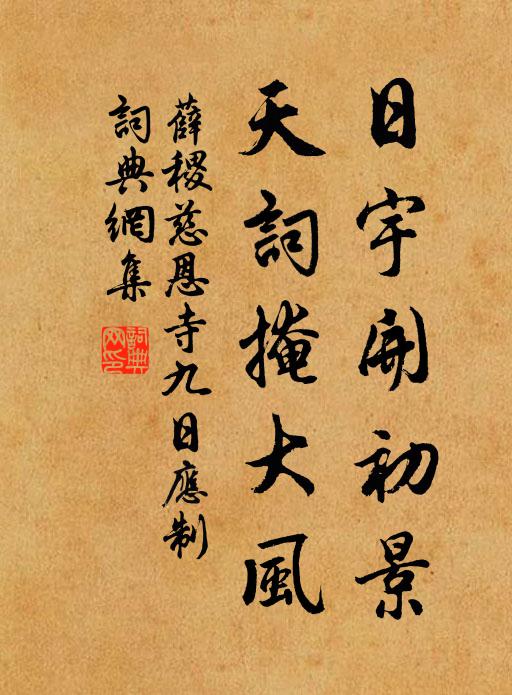 日宇開初景
天詞掩大風
薛稷慈恩寺九日應制
詞典網集
詞典網印